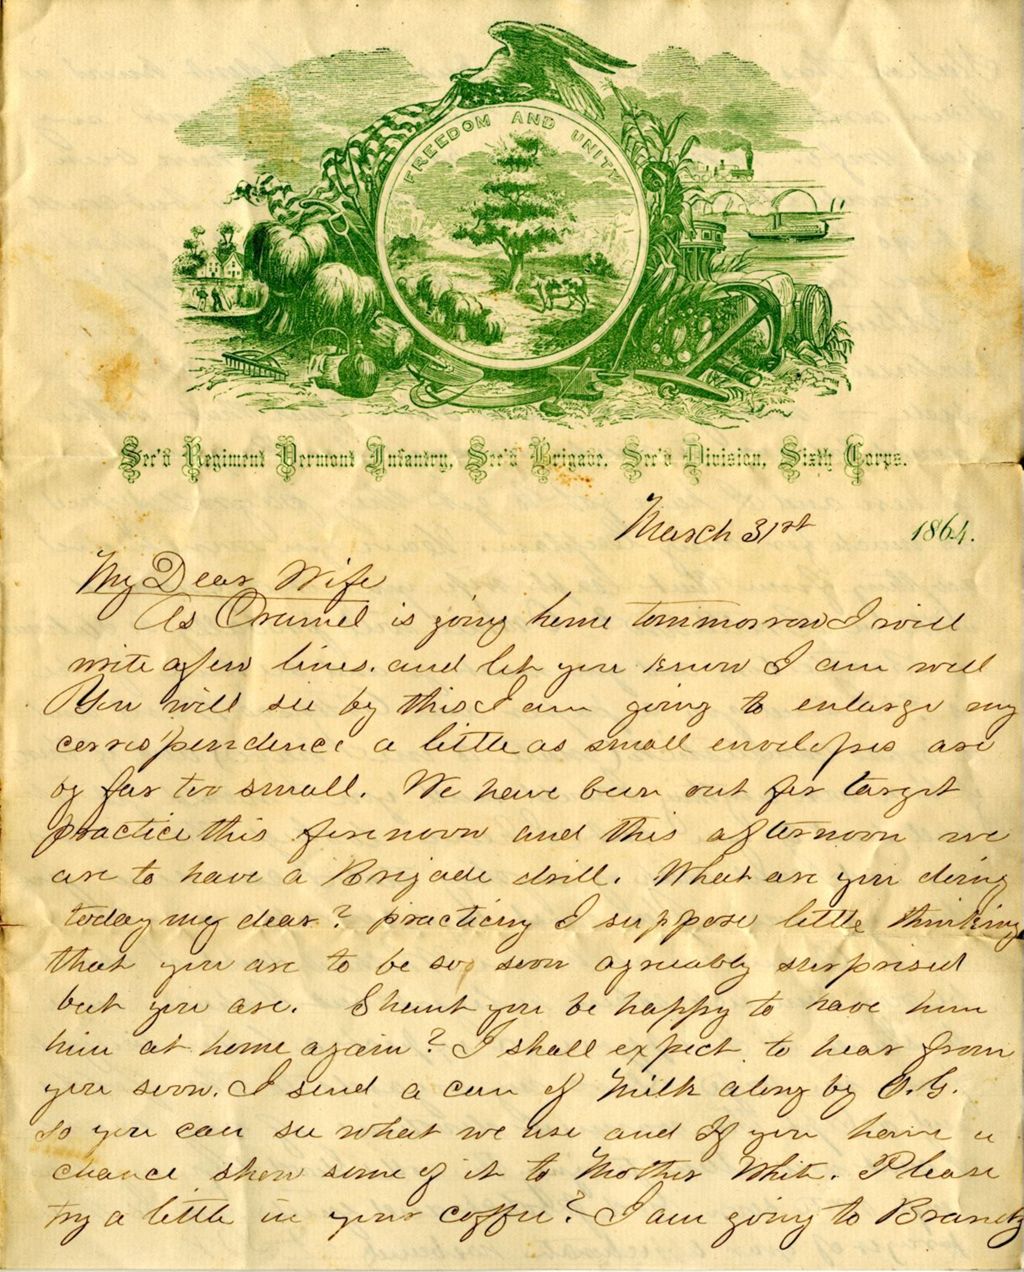 FREEDOM AND UNITY
Sec'd Regiment Vermont Infantry, Sec'd Brigade, Sec'd Division, Sixth Corps.
March 31st 1864.
My Dear Wife
As Oramel is going home tommorrow I will
write a few lines. and let you know I am well
You will see by this I am going to enlarge my
correspendence a little as small envelopes are
by far too small. We have been out for target
practice this forenoon and this afternoon we
are to have a Brigade drill. What are you doing
today my dear? practicing I suppose little thinking
that you are to be so soon agreeably surprised
but you are. Shant you be happy to have him
him at home again? I shall expect to hear from
you soon. I send a can of Milk along by O.G.
so you can see what we use and If you have a
chance show some of it to Mother White. Please
try a little in your coffee? I am going to Brandy